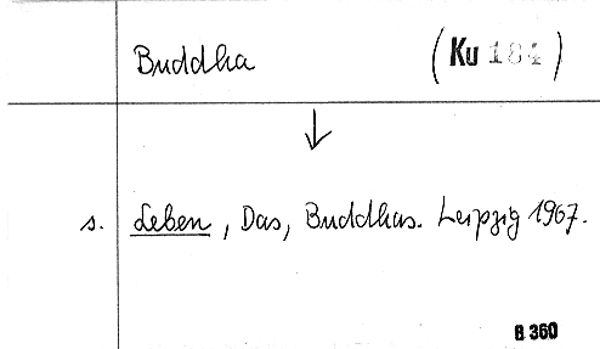 Buddha (Ku 184)
↓
s. Leben, Das, Buddhas. Leipzig 1967.
B 360